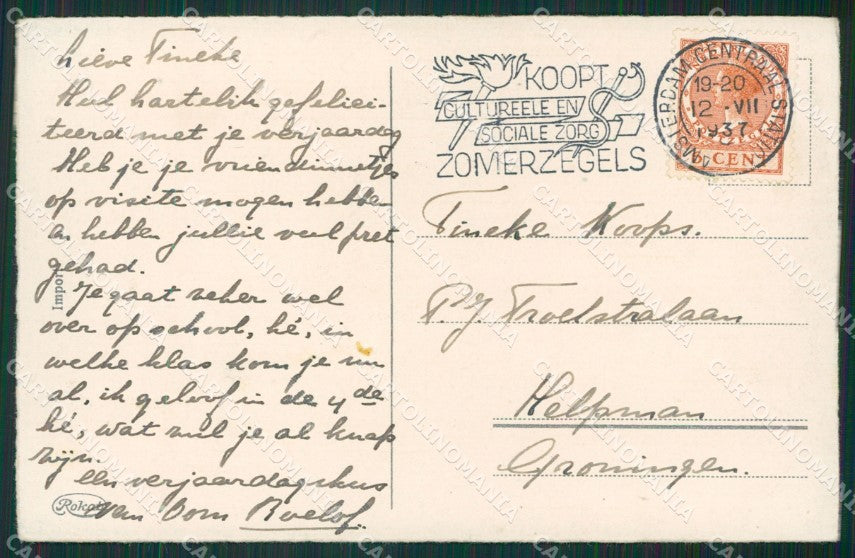 Lieve Tineke
Heel hartelik gefelici-
teerd met je verjaardag
Heb je je vriendinnetjes
op visite mogen hebben
en hebben jullie veel pret
gehad.
Je gaat zeker wel
over op school, hé, in
welke klas kom je nu
al, ik geloof in de 4de
hé, wat zul je al knap
zijn.
Een verjaardagskus
van Oom Roelof.
Import
Rokat
KOOPT
CULTUREELE EN
SOCIALE ZORG
ZOMERZEGELS
AMSTERDAM CENTRAAL STATION
19-20
12 · VII
1937
CENT
Tineke Koops.
P.J. Troelstralaan
Helpman
Groningen.
CARTOLINOMANIA